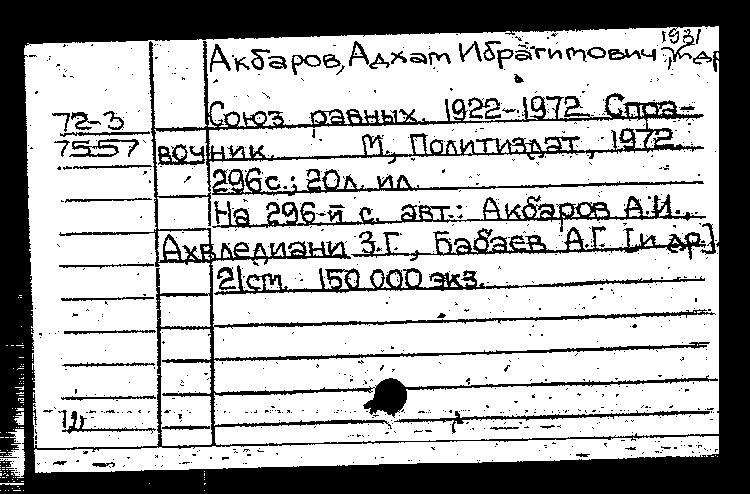 1931
Акбаров, Адхам Ибрагимович и др
72-3
Союз равных. 1922-1972. Спра-
7557
вочник. М., Политиздат, 1972.
296с.; 20л. ил.
На 296-й с. авт.: Акбаров А.И.,
Ахвледиани З.Г., Бабаев А.Г. [и др.].
21cm. 150 000 экз.